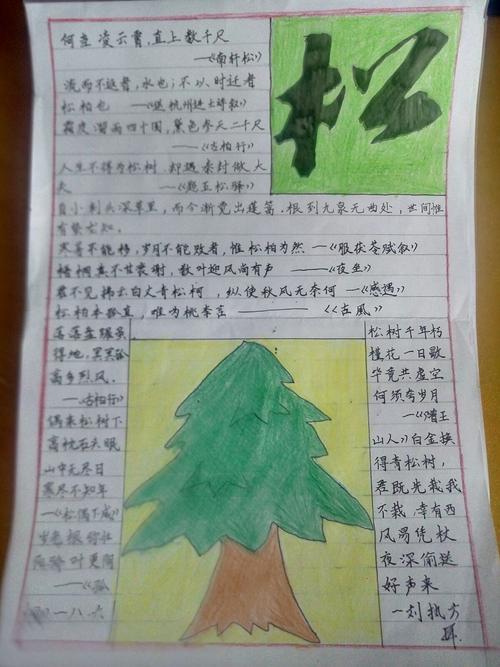 何当凌云霄,直上数千尺
——《南轩松》
流而不返者,水也;不以时迁者
松柏也 ——《送杭州进士诗叙》
霜皮溜雨四十围,黛色参天二千尺
——《古柏行》
人生不得为松树 却遇秦封做大
夫 ——《题五松驿》
自小刺头深草里,而今渐觉出蓬蒿.根到九泉无曲处,世间惟
有蛰龙知.
寒暑不能移,岁月不能败者,惟松柏为然 —《服茯苓赋叙》
梧桐真不甘衰谢,数叶迎风尚有声 ——《夜坐》
君不见拂云百丈青松柯,纵使秋风无奈何 —《感遇》
松柏本孤直,难为桃李言 ——《古风》
松
落落盘踞虽
得地,冥冥孤
高多烈风.
—《古柏行》
偶来松树下
高枕石头眠
山中无尽日
寒尽不知年
—《松偶下感》
叶更
—《孤
一八六
松树千年朽
槿花一日歇
毕竟共虚空
何须夸岁月
—《赠王
山人》白金换
得青松树,
君既先栽我
不栽,幸有西
风易凭仗
夜深偷送
好声来
一刘